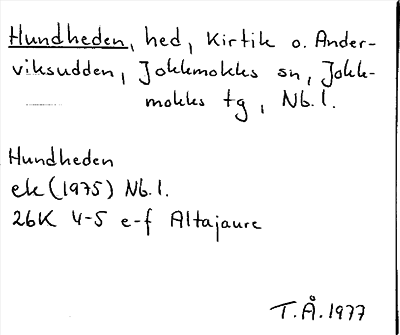 Hundheden, hed, Kirtik o. Ander-
viksudden, Jokkmokks sn, Jokk-
mokks tg, Nb.l.
Hundheden
ek (1975) Nb.l.
26K 4-5 e-f Altajaure
T.Å. 1977